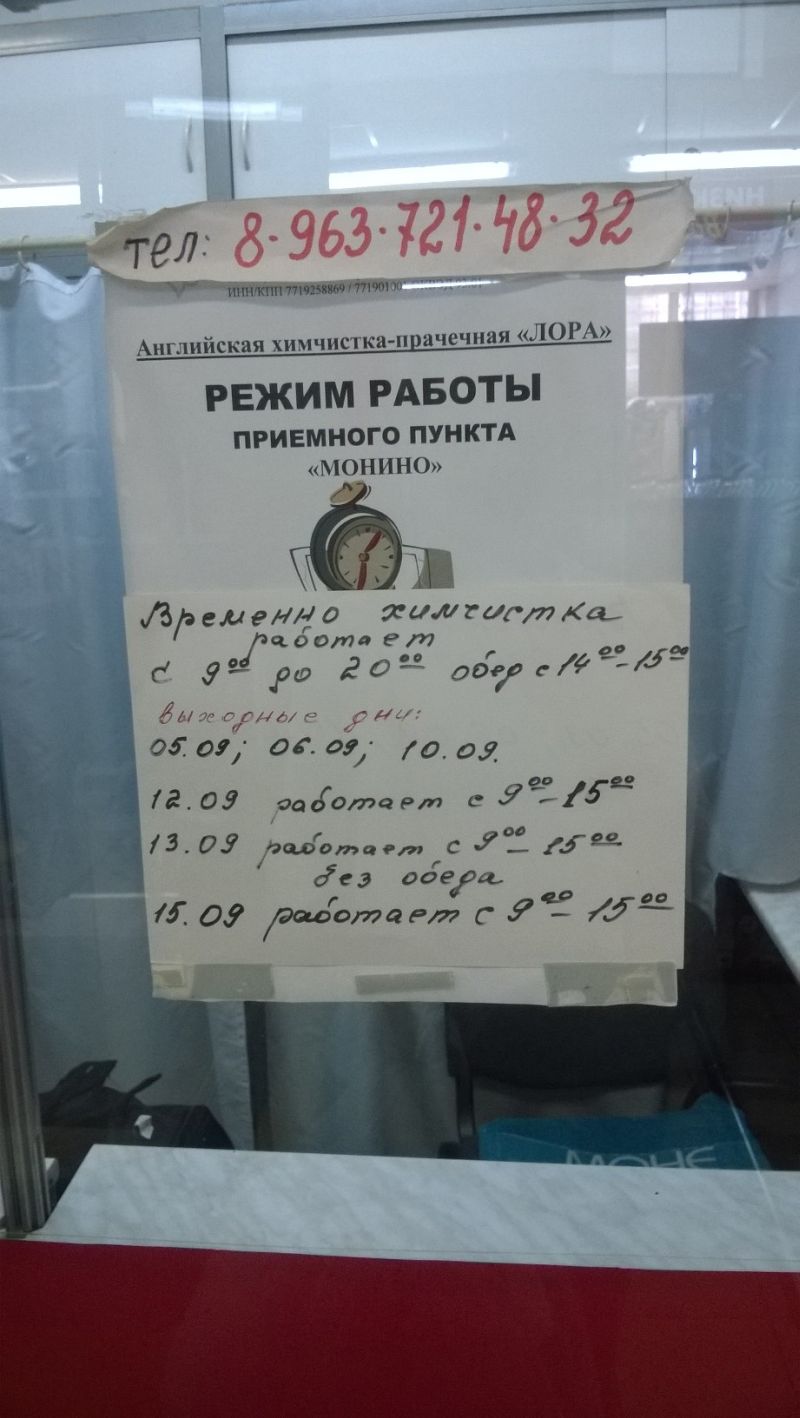 тел: 8-963-721-48-32
ИНН/КПП 7719258869 /
Английская химчистка-прачечная «ЛОРА»
РЕЖИМ РАБОТЫ
ПРИЕМНОГО ПУНКТА
«МОНИНО»
Временно химчистка
работает
с 9⁰⁰ до 20⁰⁰ обед с 14⁰⁰-15⁰⁰
выходные дни:
05.09; 06.09; 10.09.
12.09 работает с 9⁰⁰-15⁰⁰
13.09 работает с 9⁰⁰-15⁰⁰
без обеда
15.09 работает с 9⁰⁰-15⁰⁰
МОНЕ